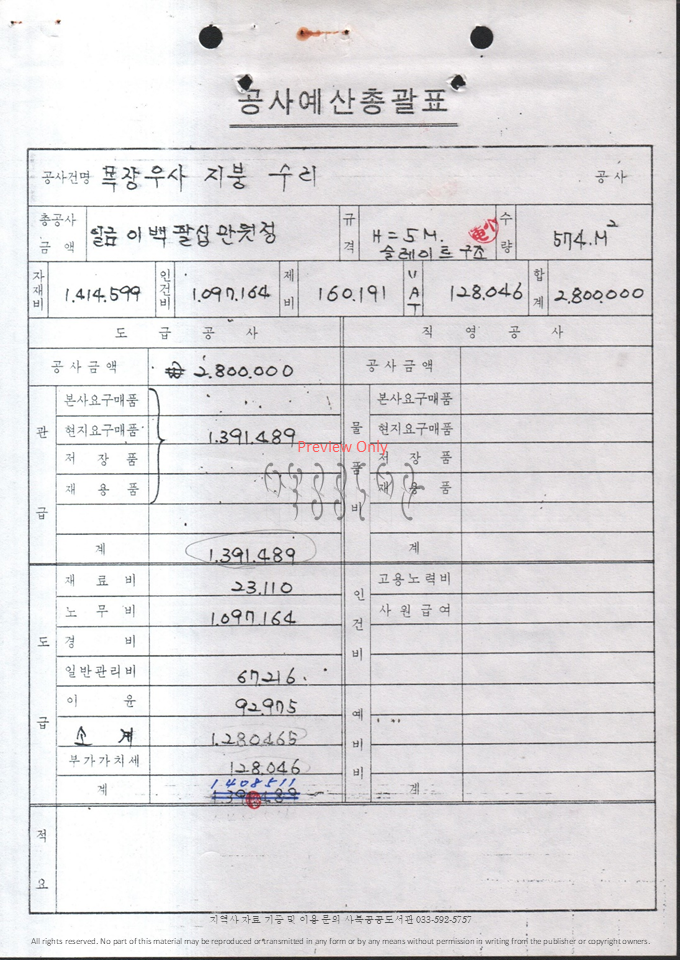 공사예산총괄표
공사건명 목장우사 지붕 수리 공사
총공사금액 일금 이백팔십만원정 규격 H=5M. 슬레이트구조 수량 574.M²
자재비 1.414.599 인건비 1.097.164 제비 160.191 VAT 128.046 합계 2.800.000
도급공사 직영공사
공사금액 ₩ 2.800.000 공사금액
관급 본사요구매품 물품비 본사요구매품
현지요구매품 1.391.489 현지요구매품
Preview Only
저장품 저장품
재용품 재용품
계 1.391.489 계
도급 재료비 23.110 인건비 고용노력비
노무비 1.097.164 사원급여
경비
일반관리비 67.216.
이윤 92.975 예비비
소계 1.280.465
부가가치세 128.046
1408511
계 1.391.489 계
적요
지역사 자료 기증 및 이용 문의 사북공공도서관 033-592-5757
All rights reserved. No part of this material may be reproduced or transmitted in any form or by any means without permission in writing from the publisher or copyright owners.